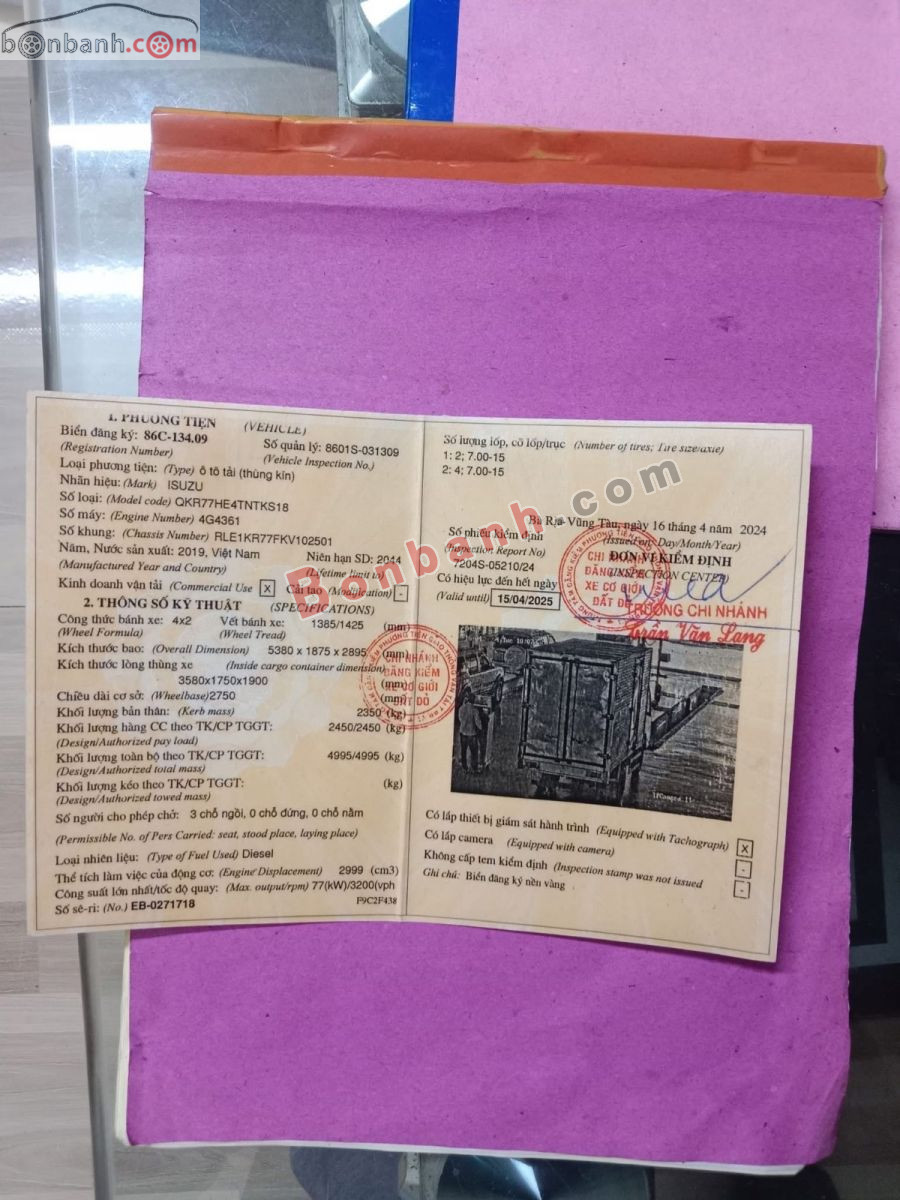 bonbanh.com
1. PHƯƠNG TIỆN (VEHICLE)
Biển đăng ký: 86C-134.09 Số quản lý: 8601S-031309
(Registration Number) (Vehicle Inspection No.)
Loại phương tiện: (Type) ô tô tải (thùng kín)
Nhãn hiệu: (Mark) ISUZU
Số loại: (Model code) QKR77HE4TNTKS18
Số máy: (Engine Number) 4G4361
Số khung: (Chassis Number) RLE1KR77FKV102501
Năm, Nước sản xuất: 2019, Việt Nam Niên hạn SD: 2044
(Manufactured Year and Country) (Lifetime limit to)
Kinh doanh vận tải (Commercial Use) X Cải tạo (Modification) -
2. THÔNG SỐ KỸ THUẬT (SPECIFICATIONS)
Công thức bánh xe: 4x2 Vết bánh xe: 1385/1425 (mm)
(Wheel Formula) (Wheel Tread)
Kích thước bao: (Overall Dimension) 5380 x 1875 x 2895 (mm)
Kích thước lòng thùng xe (Inside cargo container dimension)
3580x1750x1900 (mm)
Chiều dài cơ sở: (Wheelbase) 2750 (mm)
Khối lượng bản thân: (Kerb mass) 2350 (kg)
Khối lượng hàng CC theo TK/CP TGGT: 2450/2450 (kg)
(Design/Authorized pay load)
Khối lượng toàn bộ theo TK/CP TGGT: 4995/4995 (kg)
(Design/Authorized total mass)
Khối lượng kéo theo TK/CP TGGT: (kg)
(Design/Authorized towed mass)
Số người cho phép chở: 3 chỗ ngồi, 0 chỗ đứng, 0 chỗ nằm
(Permissible No. of Pers Carried: seat, stood place, laying place)
Loại nhiên liệu: (Type of Fuel Used) Diesel
Thể tích làm việc của động cơ: (Engine Displacement) 2999 (cm3)
Công suất lớn nhất/tốc độ quay: (Max. output/rpm) 77(kW)/3200(vph
Số sê-ri: (No.) EB-0271718 F9C2F438
Số lượng lốp, cỡ lốp/trục (Number of tires; Tire size/axle)
1: 2; 7.00-15
2: 4; 7.00-15
Bà Rịa-Vũng Tàu, ngày 16 tháng 4 năm 2024
(Issued on: Day/Month/Year)
Số phiếu kiểm định ĐƠN VỊ KIỂM ĐỊNH
(Inspection Report No) (INSPECTION CENTER)
7204S-05210/24
Có hiệu lực đến hết ngày
(Valid until) 15/04/2025
TRƯỞNG CHI NHÁNH
Trần Văn Lang
CHI NHÁNH
ĐĂNG KIỂM
XE CƠ GIỚI
ĐẤT ĐỎ
CHI NHÁNH
ĐĂNG KIỂM
XE CƠ GIỚI
ĐẤT ĐỎ
Bonbanh.com
Có lắp thiết bị giám sát hành trình (Equipped with Tachograph) X
Có lắp camera (Equipped with camera) -
Không cấp tem kiểm định (Inspection stamp was not issued -
Ghi chú: Biển đăng ký nền vàng